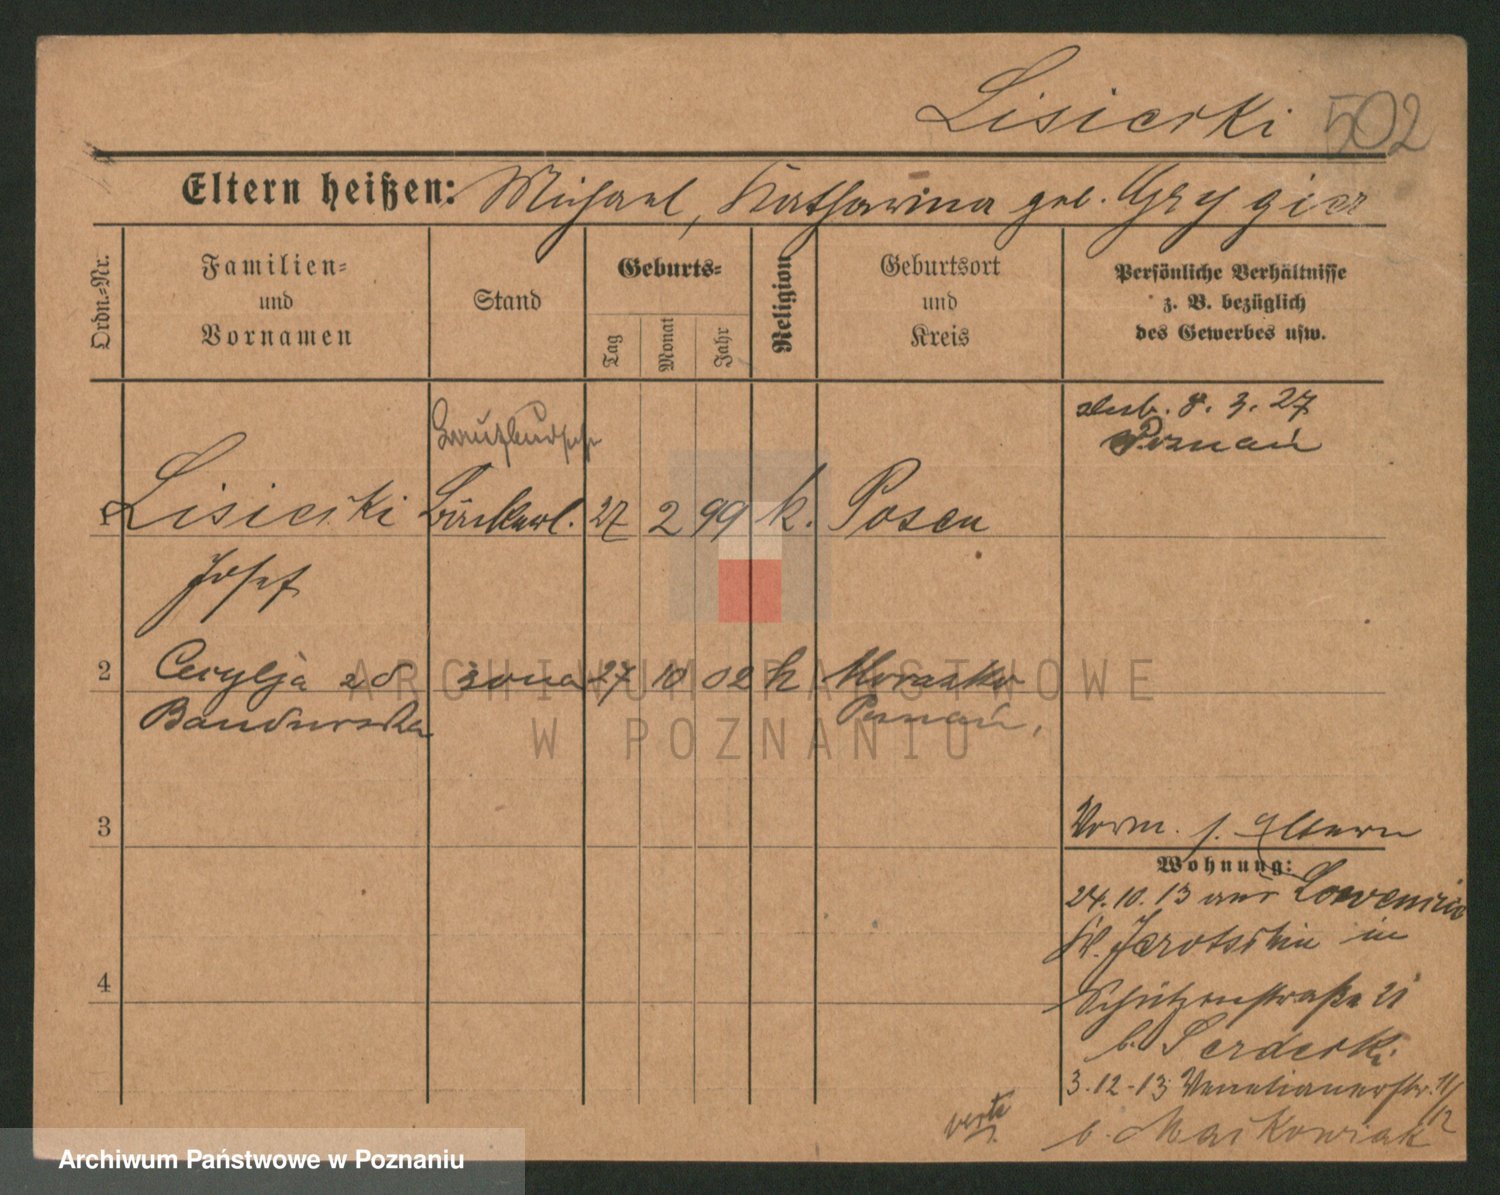 Lisiecki 502
Eltern heißen: Michael, Katharina geb. Grygier
Ordn.-Nr.
Familien-
und
Vornamen
Stand
Geburts-
Tag
Monat
Jahr
Religion
Geburtsort
und
Kreis
Persönliche Verhältnisse
z. B. bezüglich
des Gewerbes usw.
ślub. 8. 3. 27
Poznań
1 Lisiecki Bäckerl. 27 2 99 k. Posen
Josef
2 Cecylja zd żona 27 10 02 k Morasko
Bandurska Poznań,
3
Vorm. s. Eltern
Wohnung:
24.10.13 aus
Kr. Jarotschin in
4
Schützenstraße 21
b.
3.12-13 Venetianerstr. 11/12
b. Maćkowiak
verte
ARCHIWUM PAŃSTWOWE
W POZNANIU
Archiwum Państwowe w Poznaniu